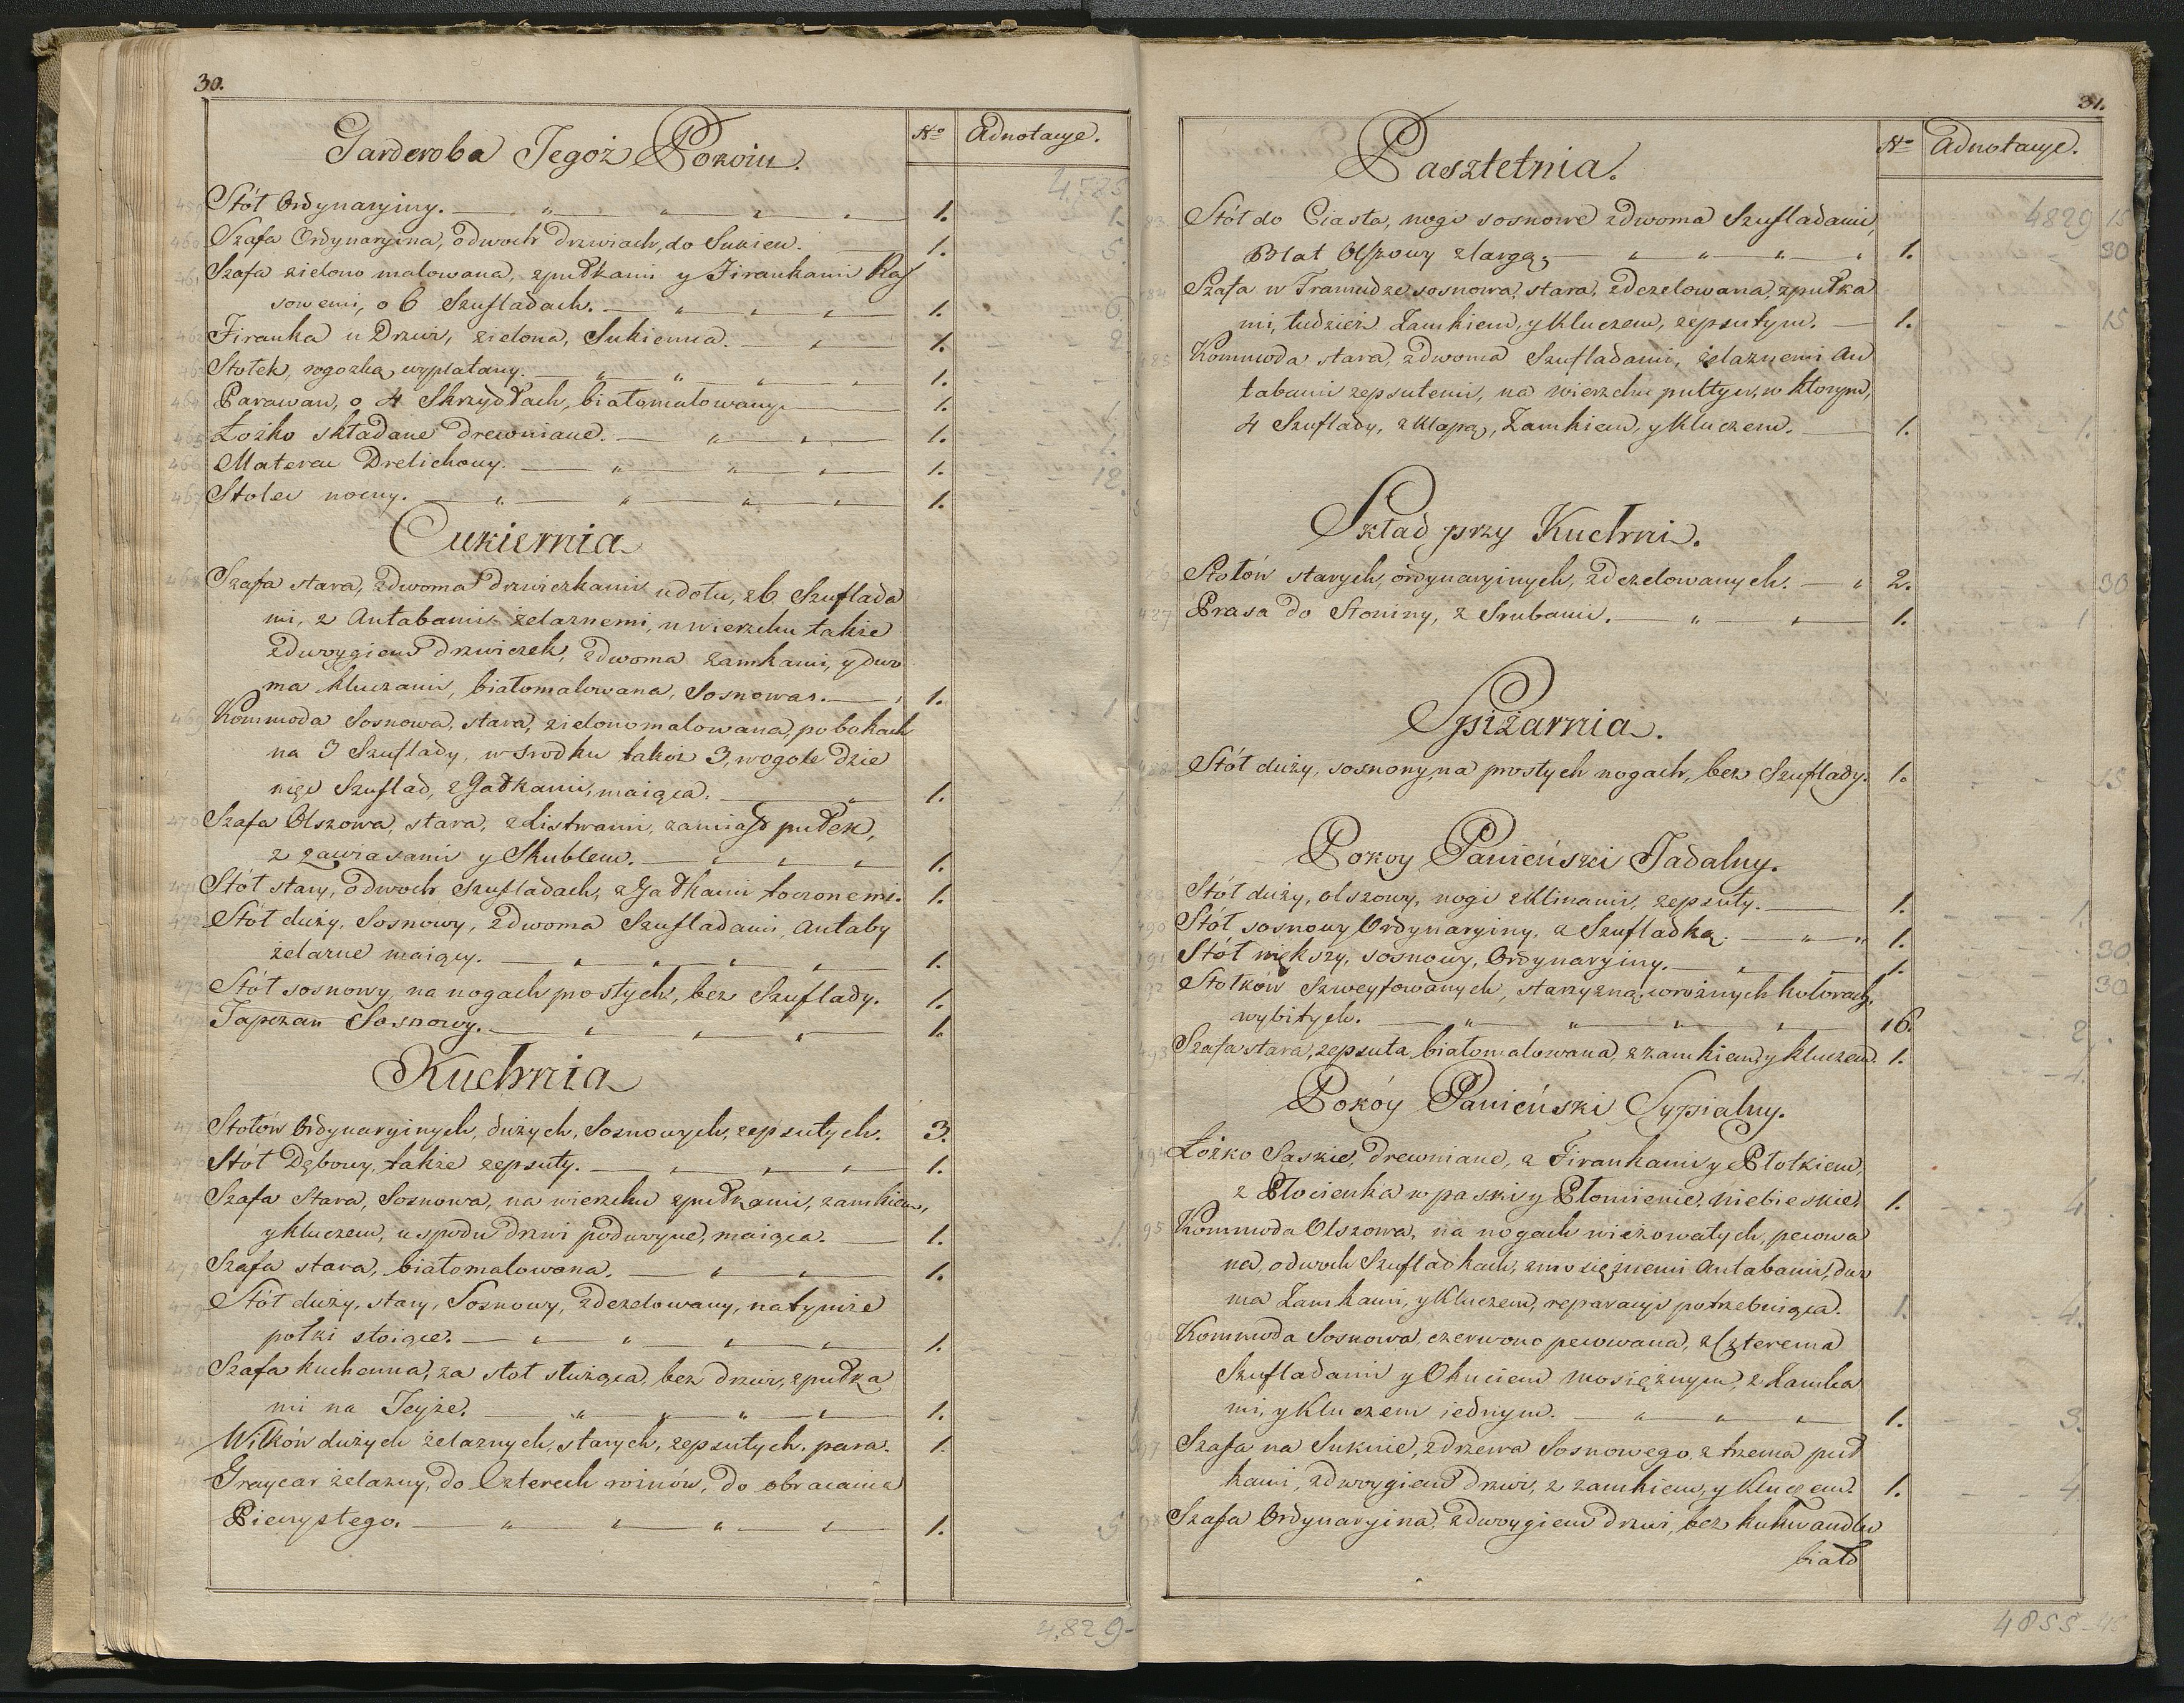 30.
Garderoba Tegoż Pokoiu.
No
Adnotacye.
4.785
459 Stół Ordynaryiny. 1. 1.
460 Szafa Ordynaryina, o dwoch drzwiach, do Sukien. 1. 5.
461 Szafa zielono malowana, z pułkami y Firankami Ras
sowemi, o 6 Szufladach. 1. 6.
462 Firanka u Drzwi, zielona, Sukienna. 1. 2
463 Stołek, rogozką wyplatany. 1.
464 Parawan, o 4 Skrzydłach, białomalowany. 1. 1.
465 Łożko składane drewniane. 1. 1.
466 Materac Drelichowy. 1. 12.
467 Stolec nocny. 1.
Cukiernia
468 Szafa stara, z dwoma drzwiczkami u dołu, z 6 Szuflada
mi, z Antabami żelaznemi, u wierzchu także
z dwoygiem drzwiczek, z dwoma zamkami, y dwo
ma kluczami, białomalowana, Sosnowa. 1. 1
469 Kommoda Sosnowa, stara, zielonomalowana, po bokach
na 3 Szuflady, w srodku takoż 3, wogole dzie
więć Szuflad, z Gałkami, maiąca. 1.
470 Szafa Olszowa, stara, z Listwami, zamiast pułek,
z zawiasami y Skublem. 1.
471 Stół stary, o dwoch Szufladach, z Gałkami toczonemi. 1.
472 Stół duży, Sosnowy, z dwoma Szufladami, Antaby
żelazne maiący. 1.
473 Stół sosnowy, na nogach prostych, bez Szuflady. 1.
474 Tapczan Sosnowy. 1.
Kuchnia
475 Stołów Ordynaryinych, dużych, Sosnowych, zepsutych. 3.
476 Stoł Dębowy, także zepsuty. 1.
477 Szafa stara, Sosnowa, na wierzchu z pułkami, zamkiem,
y kluczem, u spodu drzwi podwoyne, maiąca. 1. 1.
478 Szafa stara, białomalowana. 1.
479 Stół duży, stary, Sosnowy, zdezelowany, na tymże
połki stoiące. 1.
480 Szafa kuchenna, za stoł służąca, bez drzwi, z pułka
mi na Teyże. 1.
481 Wilków dużych żelaznych, starych, zepsutych. para. 1.
Graycar żelazny, do Czterech rożnów, do obracania
Pieczystego. 1. 5
4.829-
31.
Pasztetnia.
No
Adnotacye.
4829 15
83. Stół do Ciasta, nogi sosnowe z dwoma Szufladami,
Blat Olszowy z largą. 1. 30
84 Szafa w Framudze sosnowa, stara, zdezelowana, z pułka
mi, tudzież Zamkiem, y Kluczem, zepsutym. 1. 15
485 Kommoda stara, z dwoma Szufladami, żelaznemi An
tabami zepsutemi, na wierzchu pulty, w ktorym,
4 Szuflady, z klapą, Zamkiem, y Kluczem. 1. 1.
Skład przy Kuchni.
Stołów starych, ordynaryinych, zdezelowanych. 2. 30
487 Prasa do Słoniny, z Srubami. 1. 1
Spiżarnia.
488 Stół duży, sosnowy, na prostych nogach, bez Szuflady. 1. 15
Pokoy Panieński Jadalny.
489 Stół duży, olszowy, nogi z Klinami, zepsuty. 1. 1.
490 Stół sosnowy Ordynaryiny, z Szufladką. 1. 30
491 Stół większy, sosnowy, Ordynaryiny. 1. 30
92 Stołków Szweyfowanych, starzyzną, w rożnych kolorach,
wybitych. 16. 2.
493 Szafa stara, zepsuta, białomalowana, z zamkiem, y kluczem. 1. 1.
Pokóy Panieński Sypialny.
494 Łożko Saskie, drewniane, z Firankami y Płotkiem,
z Płocienka w paski y Płomienie, niebieskie. 1. 4.
95 Kommoda Olszowa, na nogach wieżowatych, pecowa
na, o dwoch Szufladkach, z mosiężnemi Antabami, dwo
ma Zamkami, y Kluczem, reparacyi potrzebuiąca. 1. 4.
96 Kommoda Sosnowa, czerwono pecowana, z Czterema
Szufladami y Okuciem mosiężnym, z Zamka
mi, y Kluczem iednym. 1. 3.
97 Szafa na Suknie, z drzewa Sosnowego, z trzema puł
kami, z dwoygiem drzwi, z zamkiem, y Kluczem. 1. 4
98 Szafa Ordynaryina, z dwoygiem drzwi, bez kukwandlu
biało
4855-45